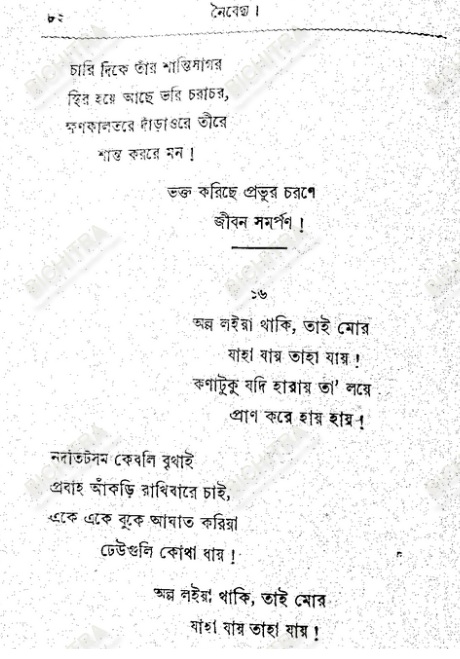 ৮২
নৈবেদ্য ।
চারি দিকে তাঁর শান্তিসাগর
স্থির হয়ে আছে ভরি চরাচর,
ক্ষণকালতরে দাঁড়াওরে তীরে
শান্ত কররে মন !
ভক্ত করিছে প্রভুর চরণে
জীবন সমর্পণ !
১৬
অল্প লইয়া থাকি, তাই মোর
যাহা যায় তাহা যায় !
কণাটুকু যদি হারায় তা’ লয়ে
প্রাণ করে হায় হায় !
নদীতটসম কেবলি বৃথাই
প্রবাহ আঁকড়ি রাখিবারে চাই,
একে একে বুকে আঘাত করিয়া
ঢেউগুলি কোথা ধায় !
অল্প লইয়া থাকি, তাই মোর
যাহা যায় তাহা যায় !
BICHITRA